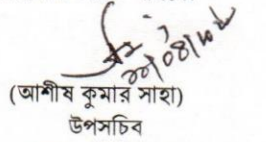 (আশীষ কুমার সাহা)
উপসচিব